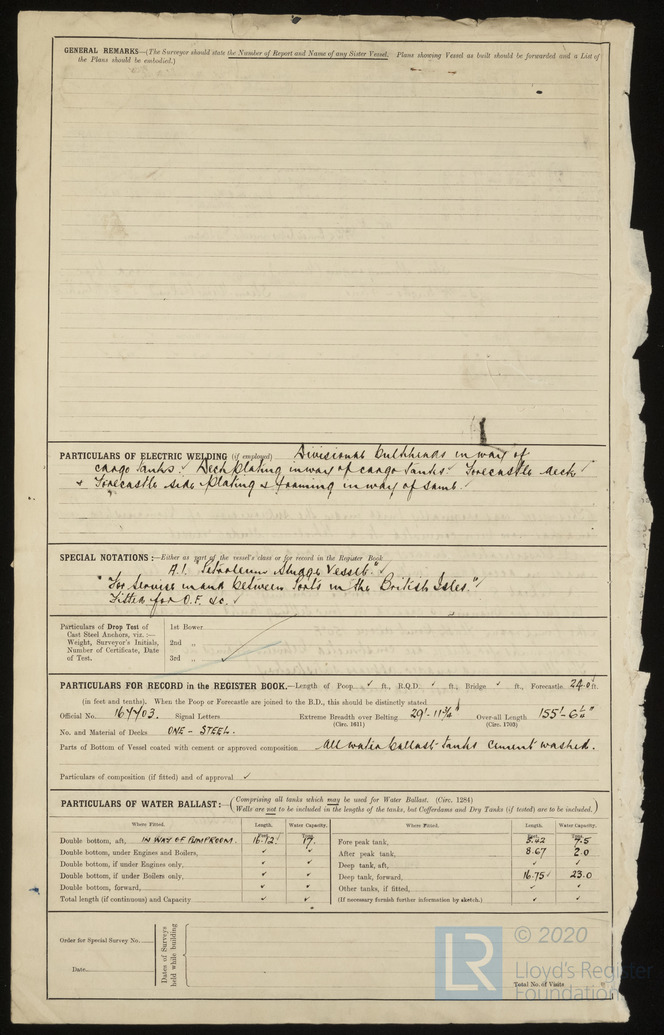 GENERAL REMARKS—(The Surveyor should state the Number of Report and Name of any Sister Vessel. Plans showing Vessel as built should be forwarded and a List of
the Plans should be embodied.)
PARTICULARS OF ELECTRIC WELDING (if employed) Divisional bulkheads in way of
cargo tanks. Deck plating in way of cargo tanks. Forecastle deck
& Forecastle side plating & framing in way of same.
SPECIAL NOTATIONS:—Either as part of the vessel's class or for record in the Register Book
A.1. "Petroleum Sludge Vessel."
"For Service in and between Ports in the British Isles."
Fitted for O.F. &c.
Particulars of Drop Test of
Cast Steel Anchors, viz.:—
Weight, Surveyor's Initials,
Number of Certificate, Date
of Test.
1st Bower
2nd "
3rd "
PARTICULARS FOR RECORD in the REGISTER BOOK.—Length of Poop ✓ ft., R.Q.D. ✓ ft., Bridge ✓ ft., Forecastle 24.0 ft.
(in feet and tenths). When the Poop or Forecastle are joined to the B.D., this should be distinctly stated
Official No. 167703. Signal Letters Extreme Breadth over Belting 29'-11¾" Over-all Length 155'-6¼"
(Circ. 1611) (Circ. 1703)
No. and Material of Decks ONE - STEEL.
Parts of Bottom of Vessel coated with cement or approved composition All water ballast tanks cement washed.
Particulars of composition (if fitted) and of approval ✓
PARTICULARS OF WATER BALLAST:—(Comprising all tanks which may be used for Water Ballast. (Circ. 1284)
Wells are not to be included in the lengths of the tanks, but Cofferdams and Dry Tanks (if tested) are to be included.)
Where Fitted. Length. Water Capacity. Where Fitted. Length. Water Capacity.
Feet. Tons. Feet. Tons.
Double bottom, aft, IN WAY OF PUMPROOM. 16.72 17. Fore peak tank, 8.42 9.5
Double bottom, under Engines and Boilers, ✓ ✓ After peak tank, 8.67 2.0
Double bottom, if under Engines only, ✓ ✓ Deep tank, aft, ✓ ✓
Double bottom, if under Boilers only, ✓ ✓ Deep tank, forward, 16.75 23.0
Double bottom, forward, ✓ ✓ Other tanks, if fitted, ✓ ✓
Total length (if continuous) and Capacity ✓ ✓ (If necessary furnish further information by sketch.) ✓ ✓
Order for Special Survey No.
Date
Dates of Surveys
held while building
Total No. of Visits
LR
© 2020
Lloyd's Register
Foundation